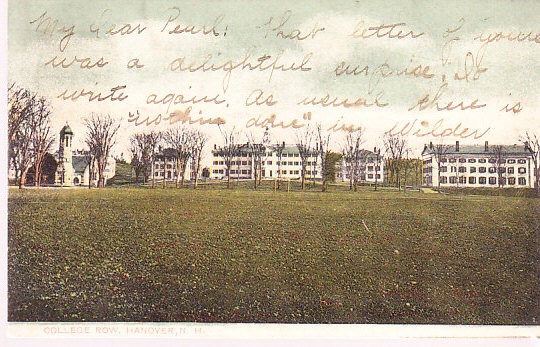 My dear Pearl: That letter of yours
was a delightful surprise; Do
write again. As usual there is
"nothing doing" in Wilder
COLLEGE ROW, HANOVER, N. H.